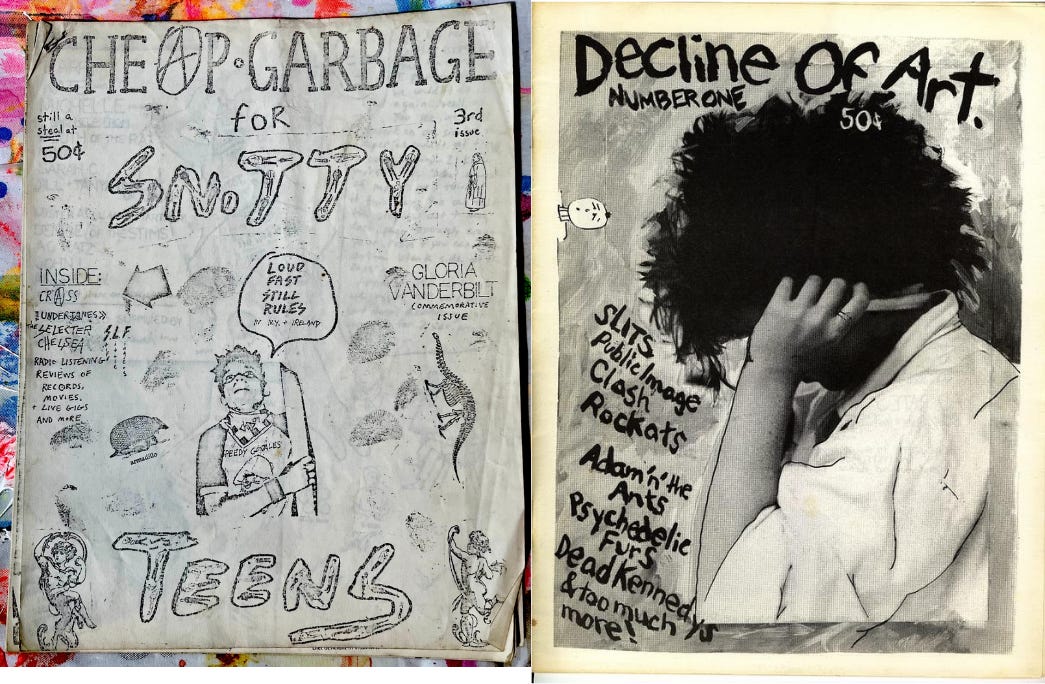 CHEAP·GARBAGE
for
still a
steal at
50¢
3rd
issue
SNOTTY
INSIDE:
CRASS
UNDERTONES
THE SELECTER
CHELSEA
S.L.F.
RADIO LISTENING
REVIEWS OF
RECORDS,
MOVIES,
+ LIVE GIGS
AND MORE
LOUD
FAST
STILL
RULES
IN N.Y. + IRELAND
GLORIA
VANDERBILT
COMMEMORATIVE
ISSUE
armadillo
SPEEDY GONZALES
TEENS
Decline Of Art.
NUMBER ONE
50¢
SLITS
Public Image
Clash
Rockats
Adam 'n' the
Ants
Psychedelic
Furs
Dead Kennedys
& too much
more!